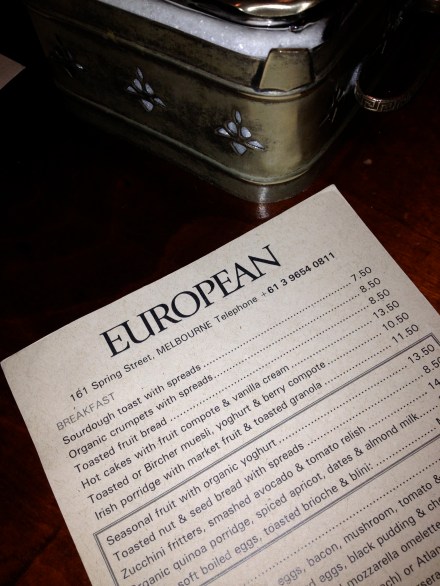 EUROPEAN
161 Spring Street, MELBOURNE Telephone +61 3 9654 0811
BREAKFAST
Sourdough toast with spreads 7.50
Organic crumpets with spreads 8.50
Toasted fruit bread 8.50
Hot cakes with fruit compote & vanilla cream 13.50
Toasted or Bircher muesli, yoghurt & berry compote 10.50
Irish porridge with market fruit & toasted granola 11.50
Seasonal fruit with organic yoghurt 13.50
Toasted nut & seed bread with spreads 8.50
Zucchini fritters, smashed avocado & tomato relish
Organic quinoa porridge, spiced apricot, dates & almond milk
soft boiled eggs, toasted brioche & blini:
eggs, bacon, mushroom, tomato &
eggs, black pudding &
mozzarella omelette